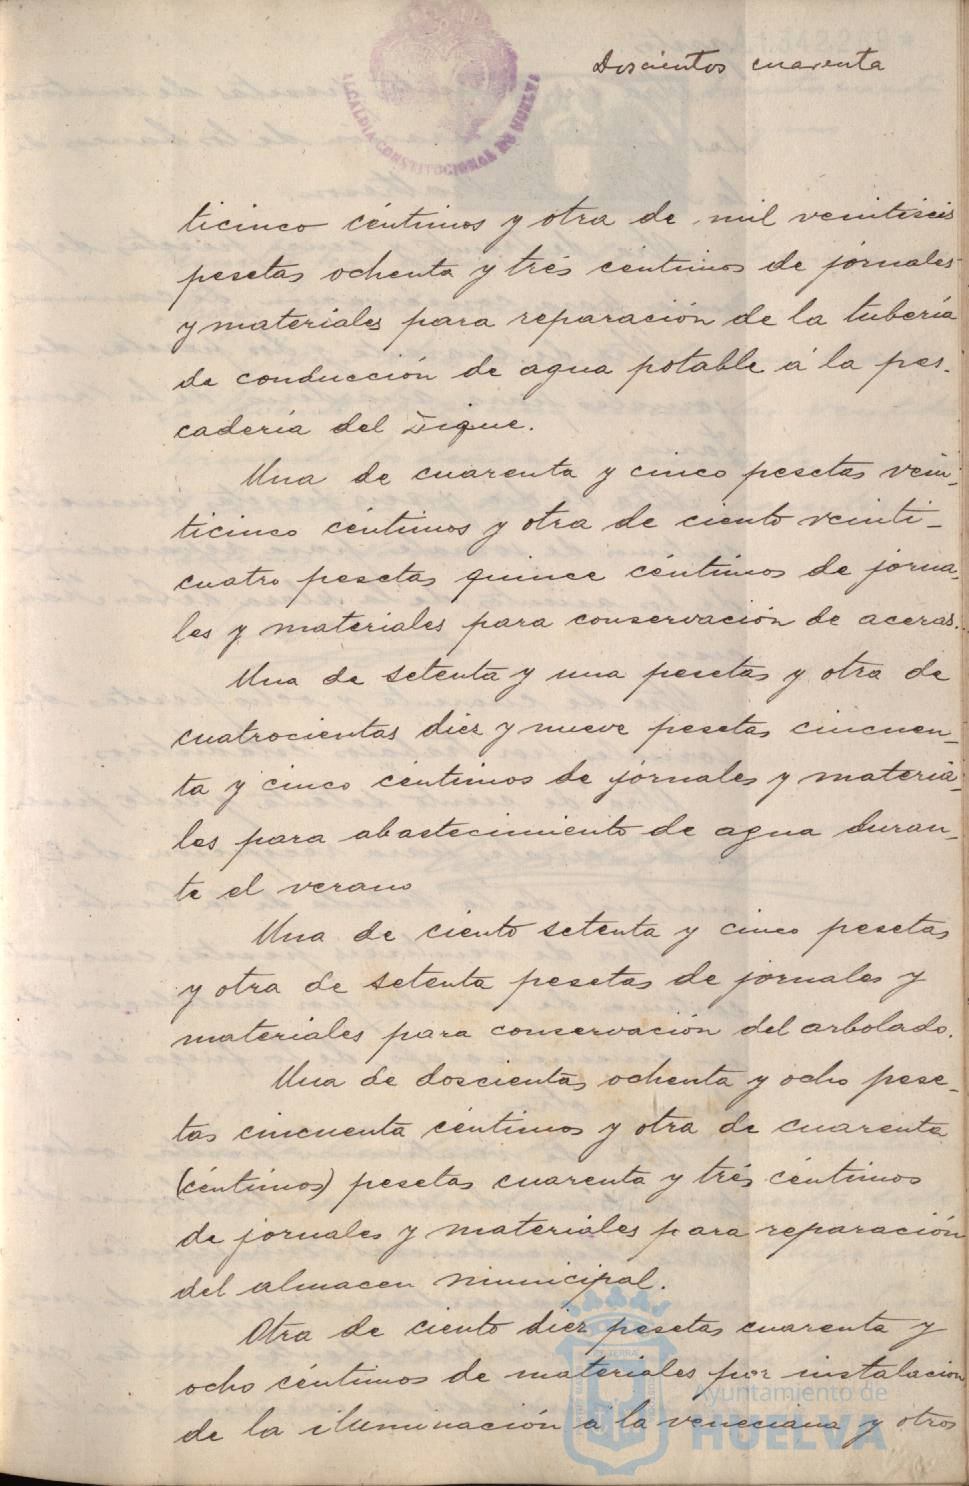 Doscientos cuarenta
ALCALDIA CONSTITUCIONAL DE HUELVA
ticinco céntimos y otra de mil veintiseis
pesetas ochenta y trés céntimos de jornales
y materiales para reparación de la tubería
de conducción de agua potable á la pes-
cadería del Dique.
Una de cuarenta y cinco pesetas vein-
ticinco céntimos y otra de ciento veinti-
cuatro pesetas quince céntimos de jorna-
les y materiales para conservación de aceras.
Una de setenta y una pesetas y otra de
cuatrocientas diez y nueve pesetas cincuen-
ta y cinco céntimos de jornales y materia-
les para abastecimiento de agua duran-
te el verano
Una de ciento setenta y cinco pesetas
y otra de setenta pesetas de jornales y
materiales para conservación del arbolado.
Una de doscientas ochenta y ocho pese-
tas cincuenta céntimos y otra de cuarenta
(céntimos) pesetas cuarenta y trés céntimos
de jornales y materiales para reparación
del almacen municipal.
Otra de ciento diez pesetas cuarenta y
ocho céntimos de materiales por instalacion
de la iluminación á la veneciana y otros
Ayuntamiento de
HUELVA